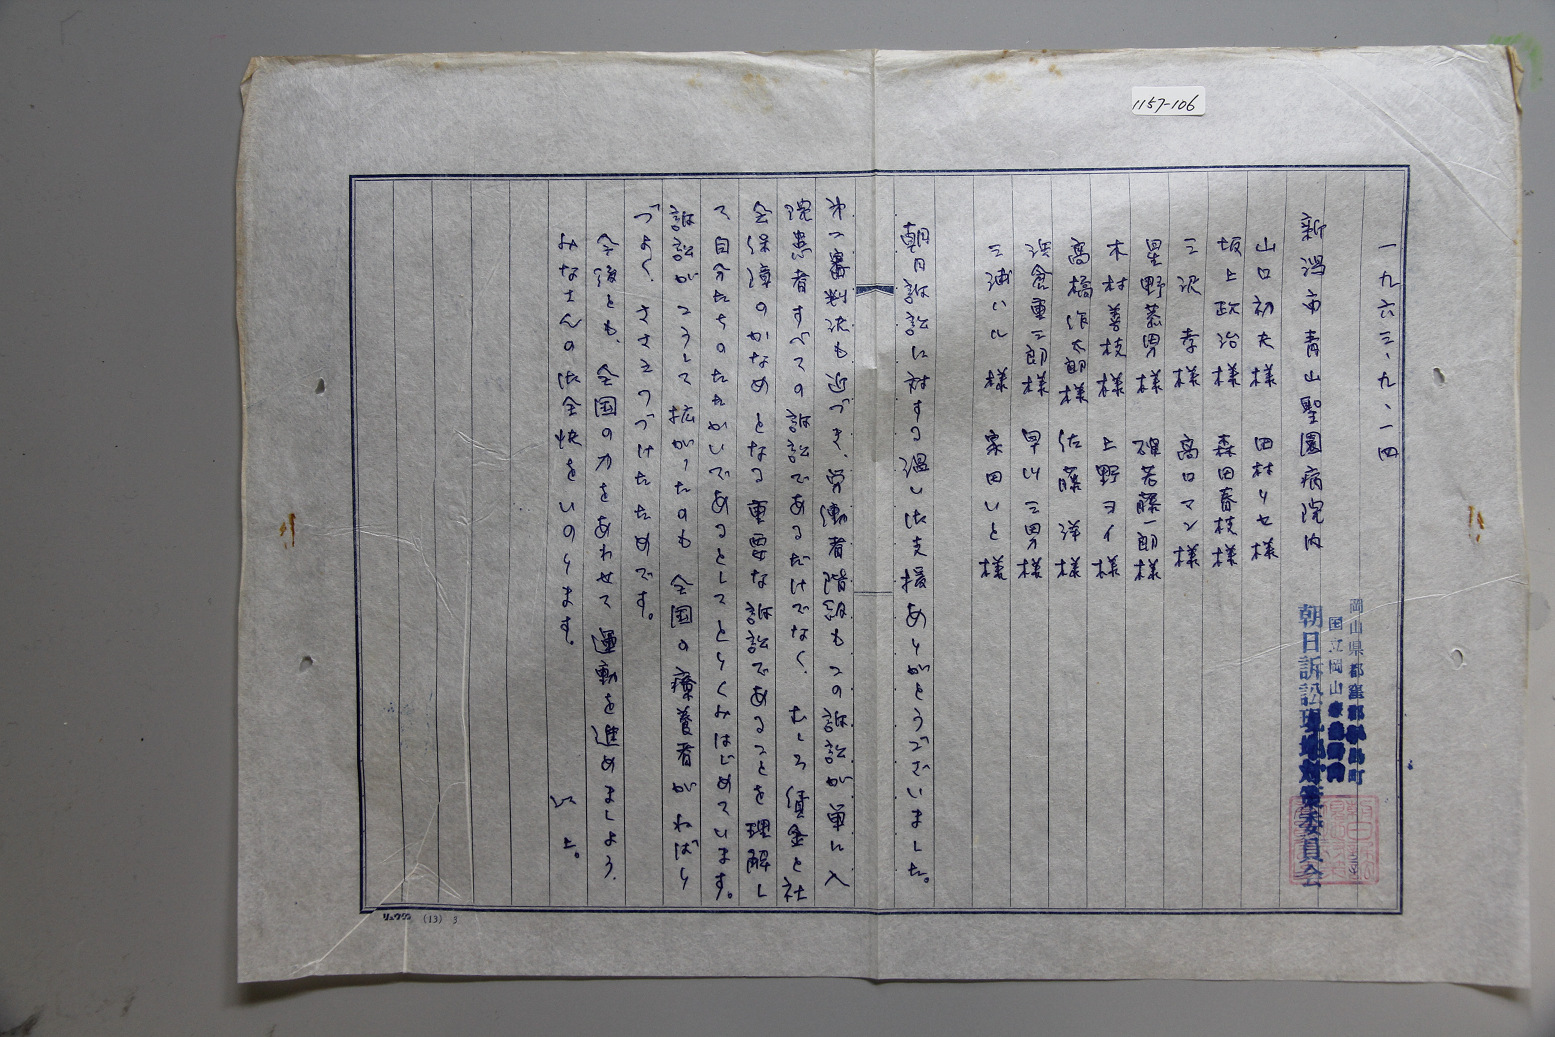 1157-106
一九六三、九、一四
岡山県都窪郡早島町
国立岡山療養所内
朝日訴訟現地対策委員会
新潟市青山聖園病院内
山口初夫様 田村リセ様
坂上政治様 森田春枝様
三沢 孝様 高口マン様
星野恭男様 若藤一郎様
木村善枝様 上野ヨイ様
高橋作太郎様 佐藤 洋様
浜倉重三郎様 早川三男様
三浦ハル様 家田いと様
朝日訴訟に対する温い御支援ありがとうございました。
第二審判決も近づき、労働者階級もこの訴訟が単に入
院患者すべての訴訟であるだけでなく、むしろ賃金と社
会保障のかなめとなる重要な訴訟であることを理解し
て自分たちのたたかいであるとしてとりくみはじめています。
訴訟がこうして拡がったのも全国の療養者がねばり
づよく、ささえつづけたためです。
今後とも、全国の力をあわせて運動を進めましよう、
みなさんの御全快をいのります。
以上。
リュウシン (13) 3